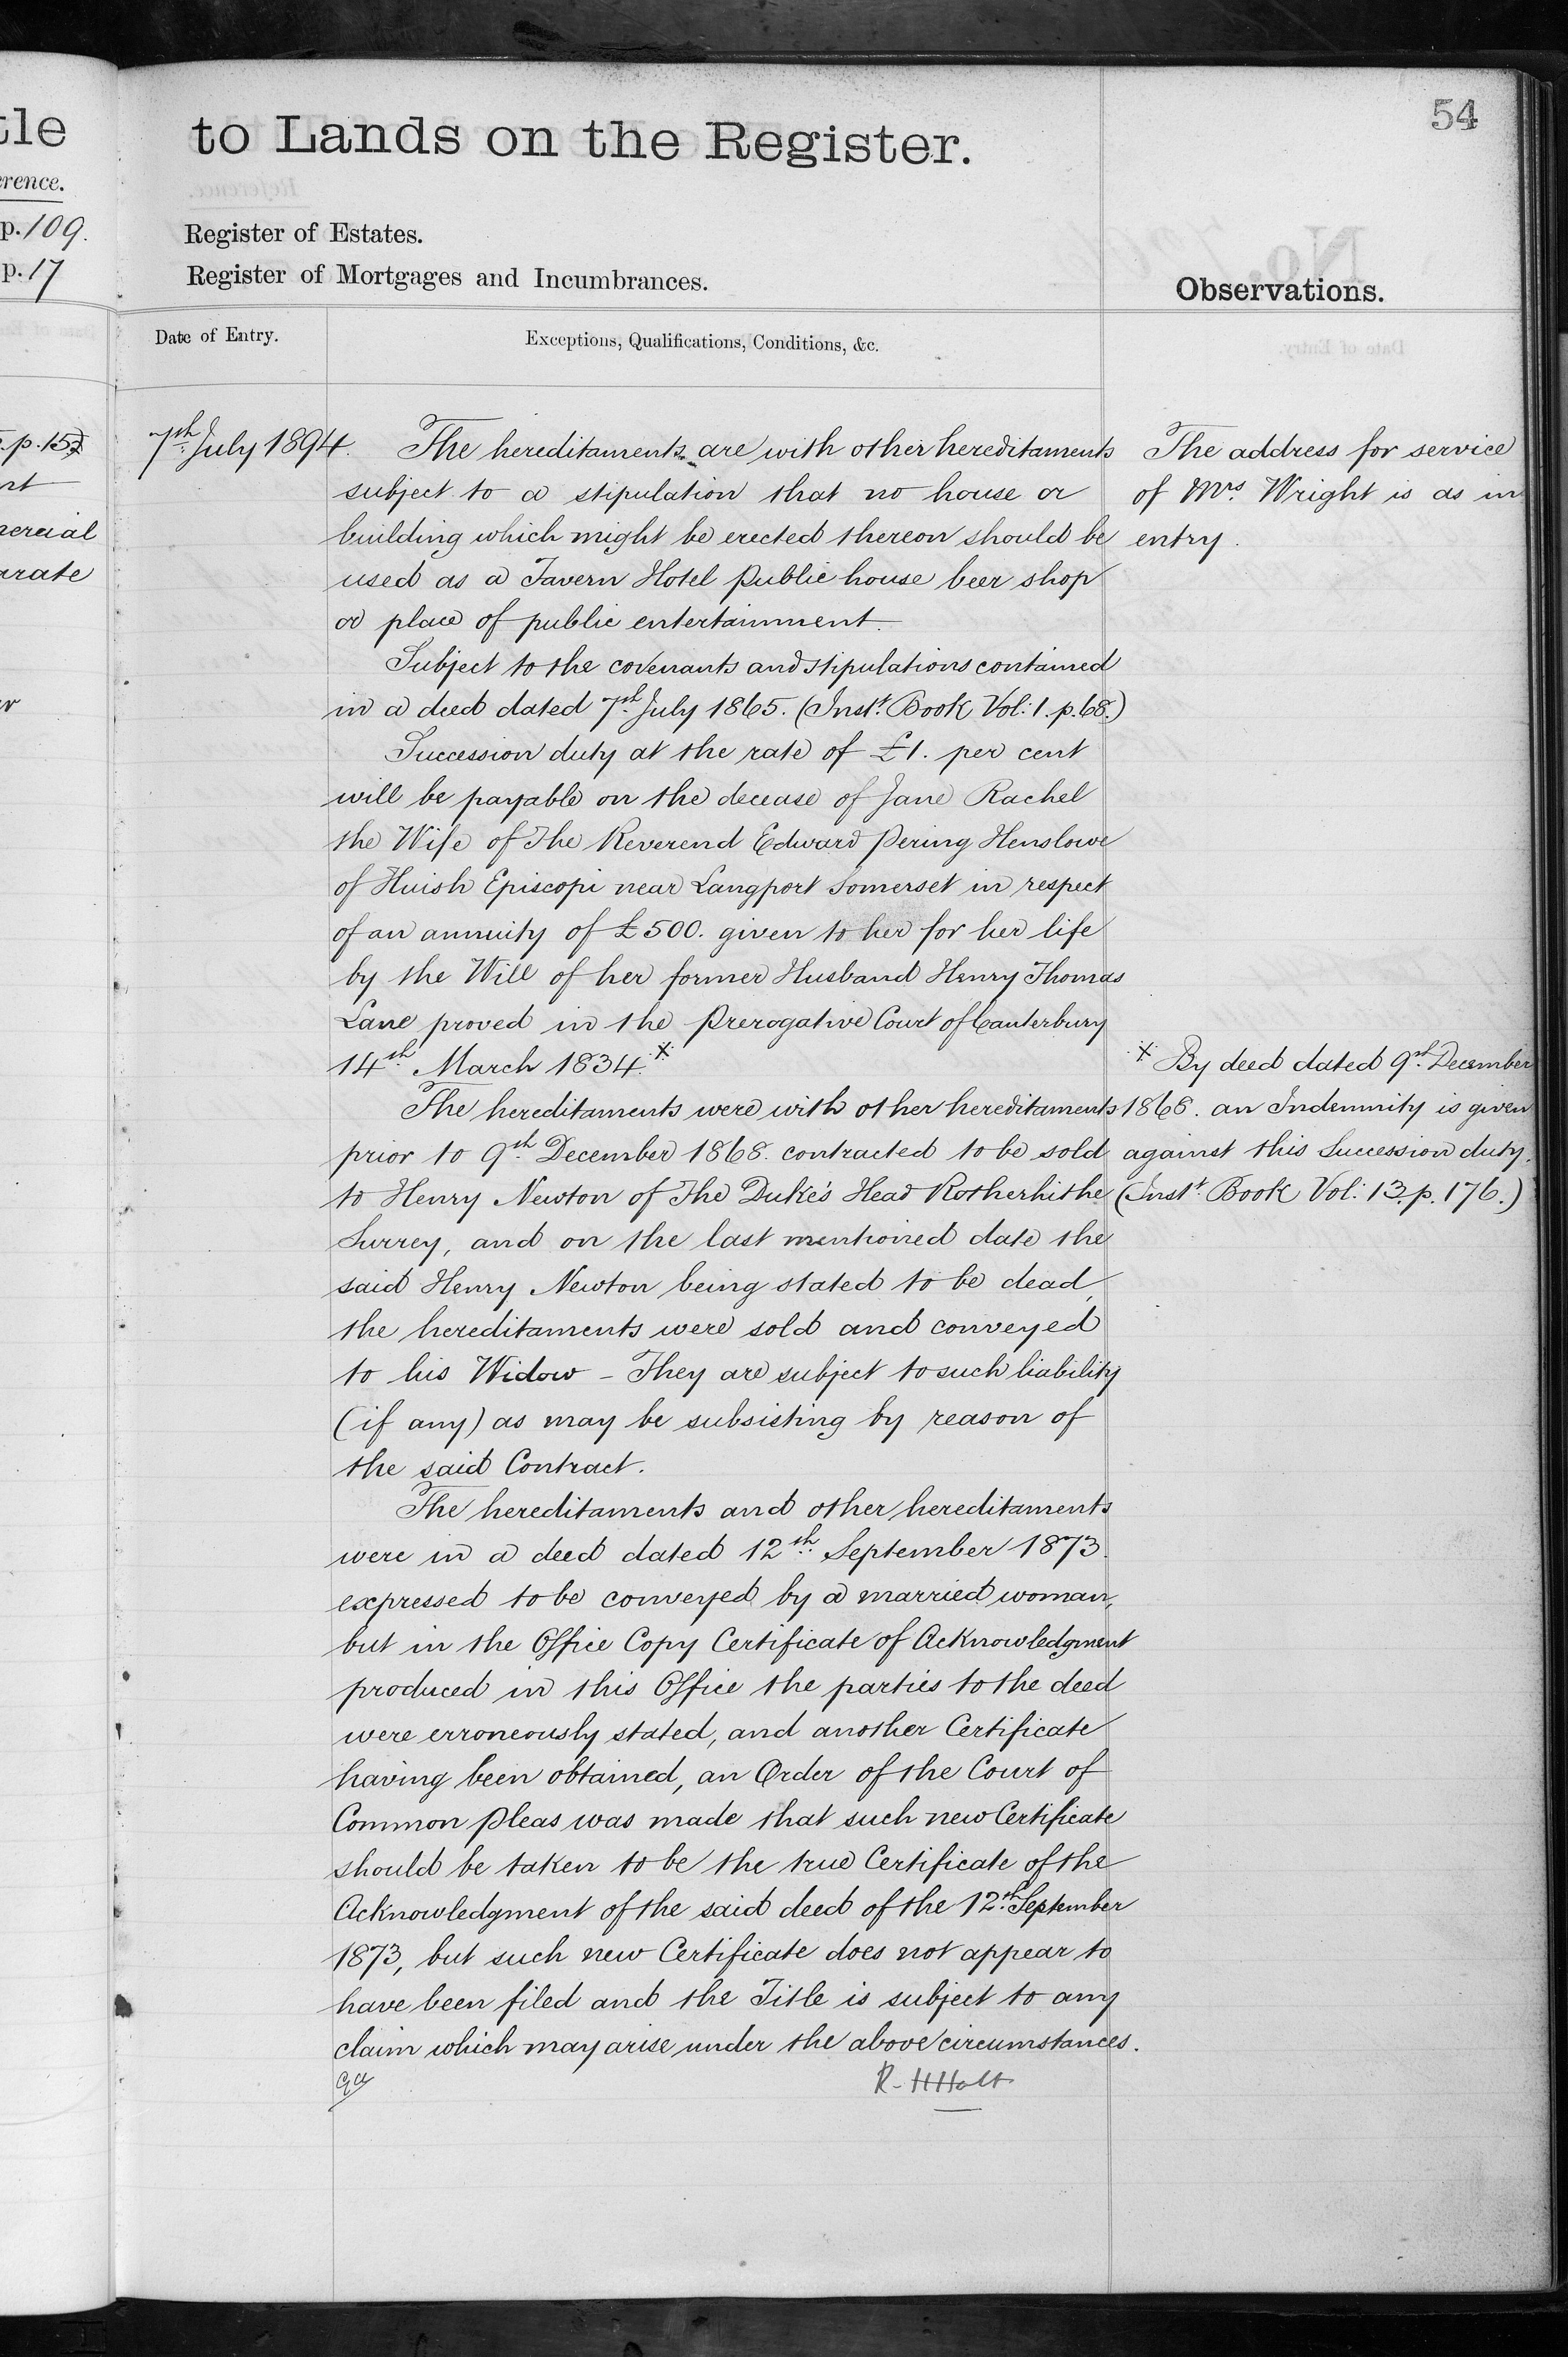 54
tle
to Lands on the Register.
erence.
p. 109.
Register of Estates.
p. 17
Register of Mortgages and Incumbrances.
Observations.
Date of Entry.
Exceptions, Qualifications, Conditions, &c.
7th July 1894.
The hereditaments are with other hereditaments
subject to a stipulation that no house or
building which might be erected thereon should be
used as a Tavern Hotel Public house beer shop
or place of public entertainment.
Subject to the covenants and stipulations contained
in a deed dated 7th July 1865. (Inst. Book Vol: 1. p. 68.)
Succession duty at the rate of £1. per cent
will be payable on the decease of Jane Rachel
the Wife of The Reverend Edward Pering Henslowe
of Huish Episcopi near Langport Somerset in respect
of an annuity of £500. given to her for her life
by the Will of her former Husband Henry Thomas
Lane proved in the Prerogative Court of Canterbury
14th March 1834.*
The hereditaments were with other hereditaments
prior to 9th December 1868. contracted to be sold
to Henry Newton of The Duke's Head Rotherhithe
Surrey, and on the last mentioned date the
said Henry Newton being stated to be dead,
the hereditaments were sold and conveyed
to his Widow - They are subject to such liability
(if any) as may be subsisting by reason of
the said Contract.
The hereditaments and other hereditaments
were in a deed dated 12th September 1873.
expressed to be conveyed by a married woman,
but in the Office Copy Certificate of Acknowledgment
produced in this Office the parties to the deed
were erroneously stated, and another Certificate
having been obtained, an Order of the Court of
Common Pleas was made that such new Certificate
should be taken to be the true Certificate of the
Acknowledgment of the said deed of the 12th September
1873, but such new Certificate does not appear to
have been filed and the Title is subject to any
claim which may arise under the above circumstances.
R. H Holt
The address for service
of Mrs. Wright is as in
entry.
* By deed dated 9th December
1868. an Indemnity is given
against this Succession duty.
(Inst. Book Vol: 13. p. 176.)